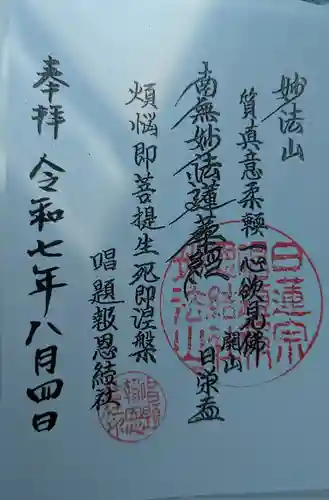 妙法山
質直意柔軟 一心欲見佛
開山
南無妙法蓮華経
日榮
煩悩即菩提生死即涅槃
唱題報恩結社
奉拝 令和七年八月四日
日蓮宗